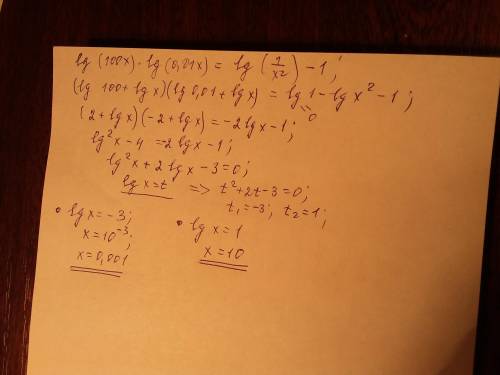 lg (100x) · lg (0,01x) = lg (1/x²) - 1;
(lg 100 + lg x)(lg 0,01 + lg x) = lg 1 - lg x² - 1;
0
(2 + lg x)(-2 + lg x) = -2 lg x - 1;
lg²x - 4 = -2 lg x - 1;
lg²x + 2 lg x - 3 = 0;
lg x = t => t² + 2t - 3 = 0;
t₁ = -3; t₂ = 1;
• lg x = -3;
x = 10⁻³;
x = 0,001
• lg x = 1
x = 10